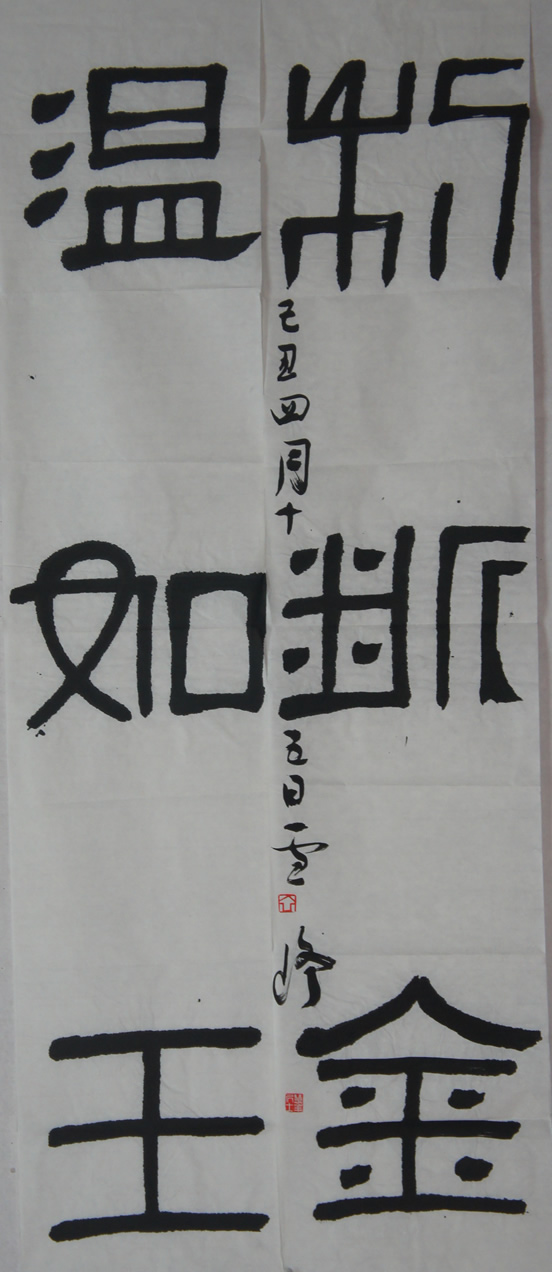 利断金
温如玉
己丑四月十五日雪峰